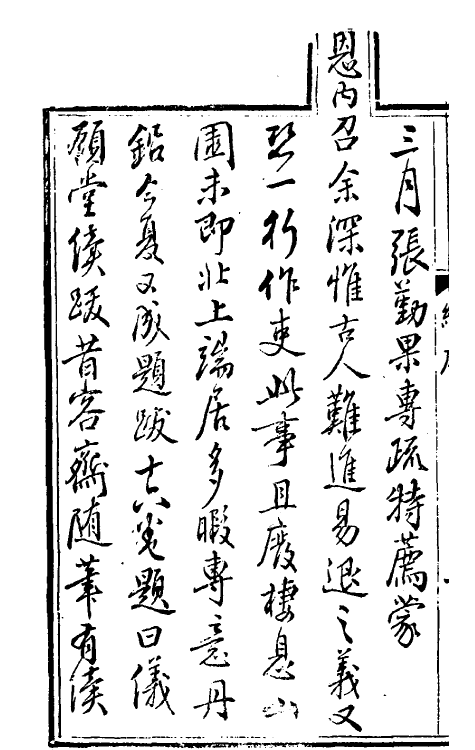 三月張勤果專疏特薦蒙
恩內召余深惟古人難進易退之義又
恐一行作吏此事且廢棲息山
園未即北上端居多暇專意丹
鉛今夏又成題跋十六〻題曰儀
顧堂續跋昔容齋隨筆有續